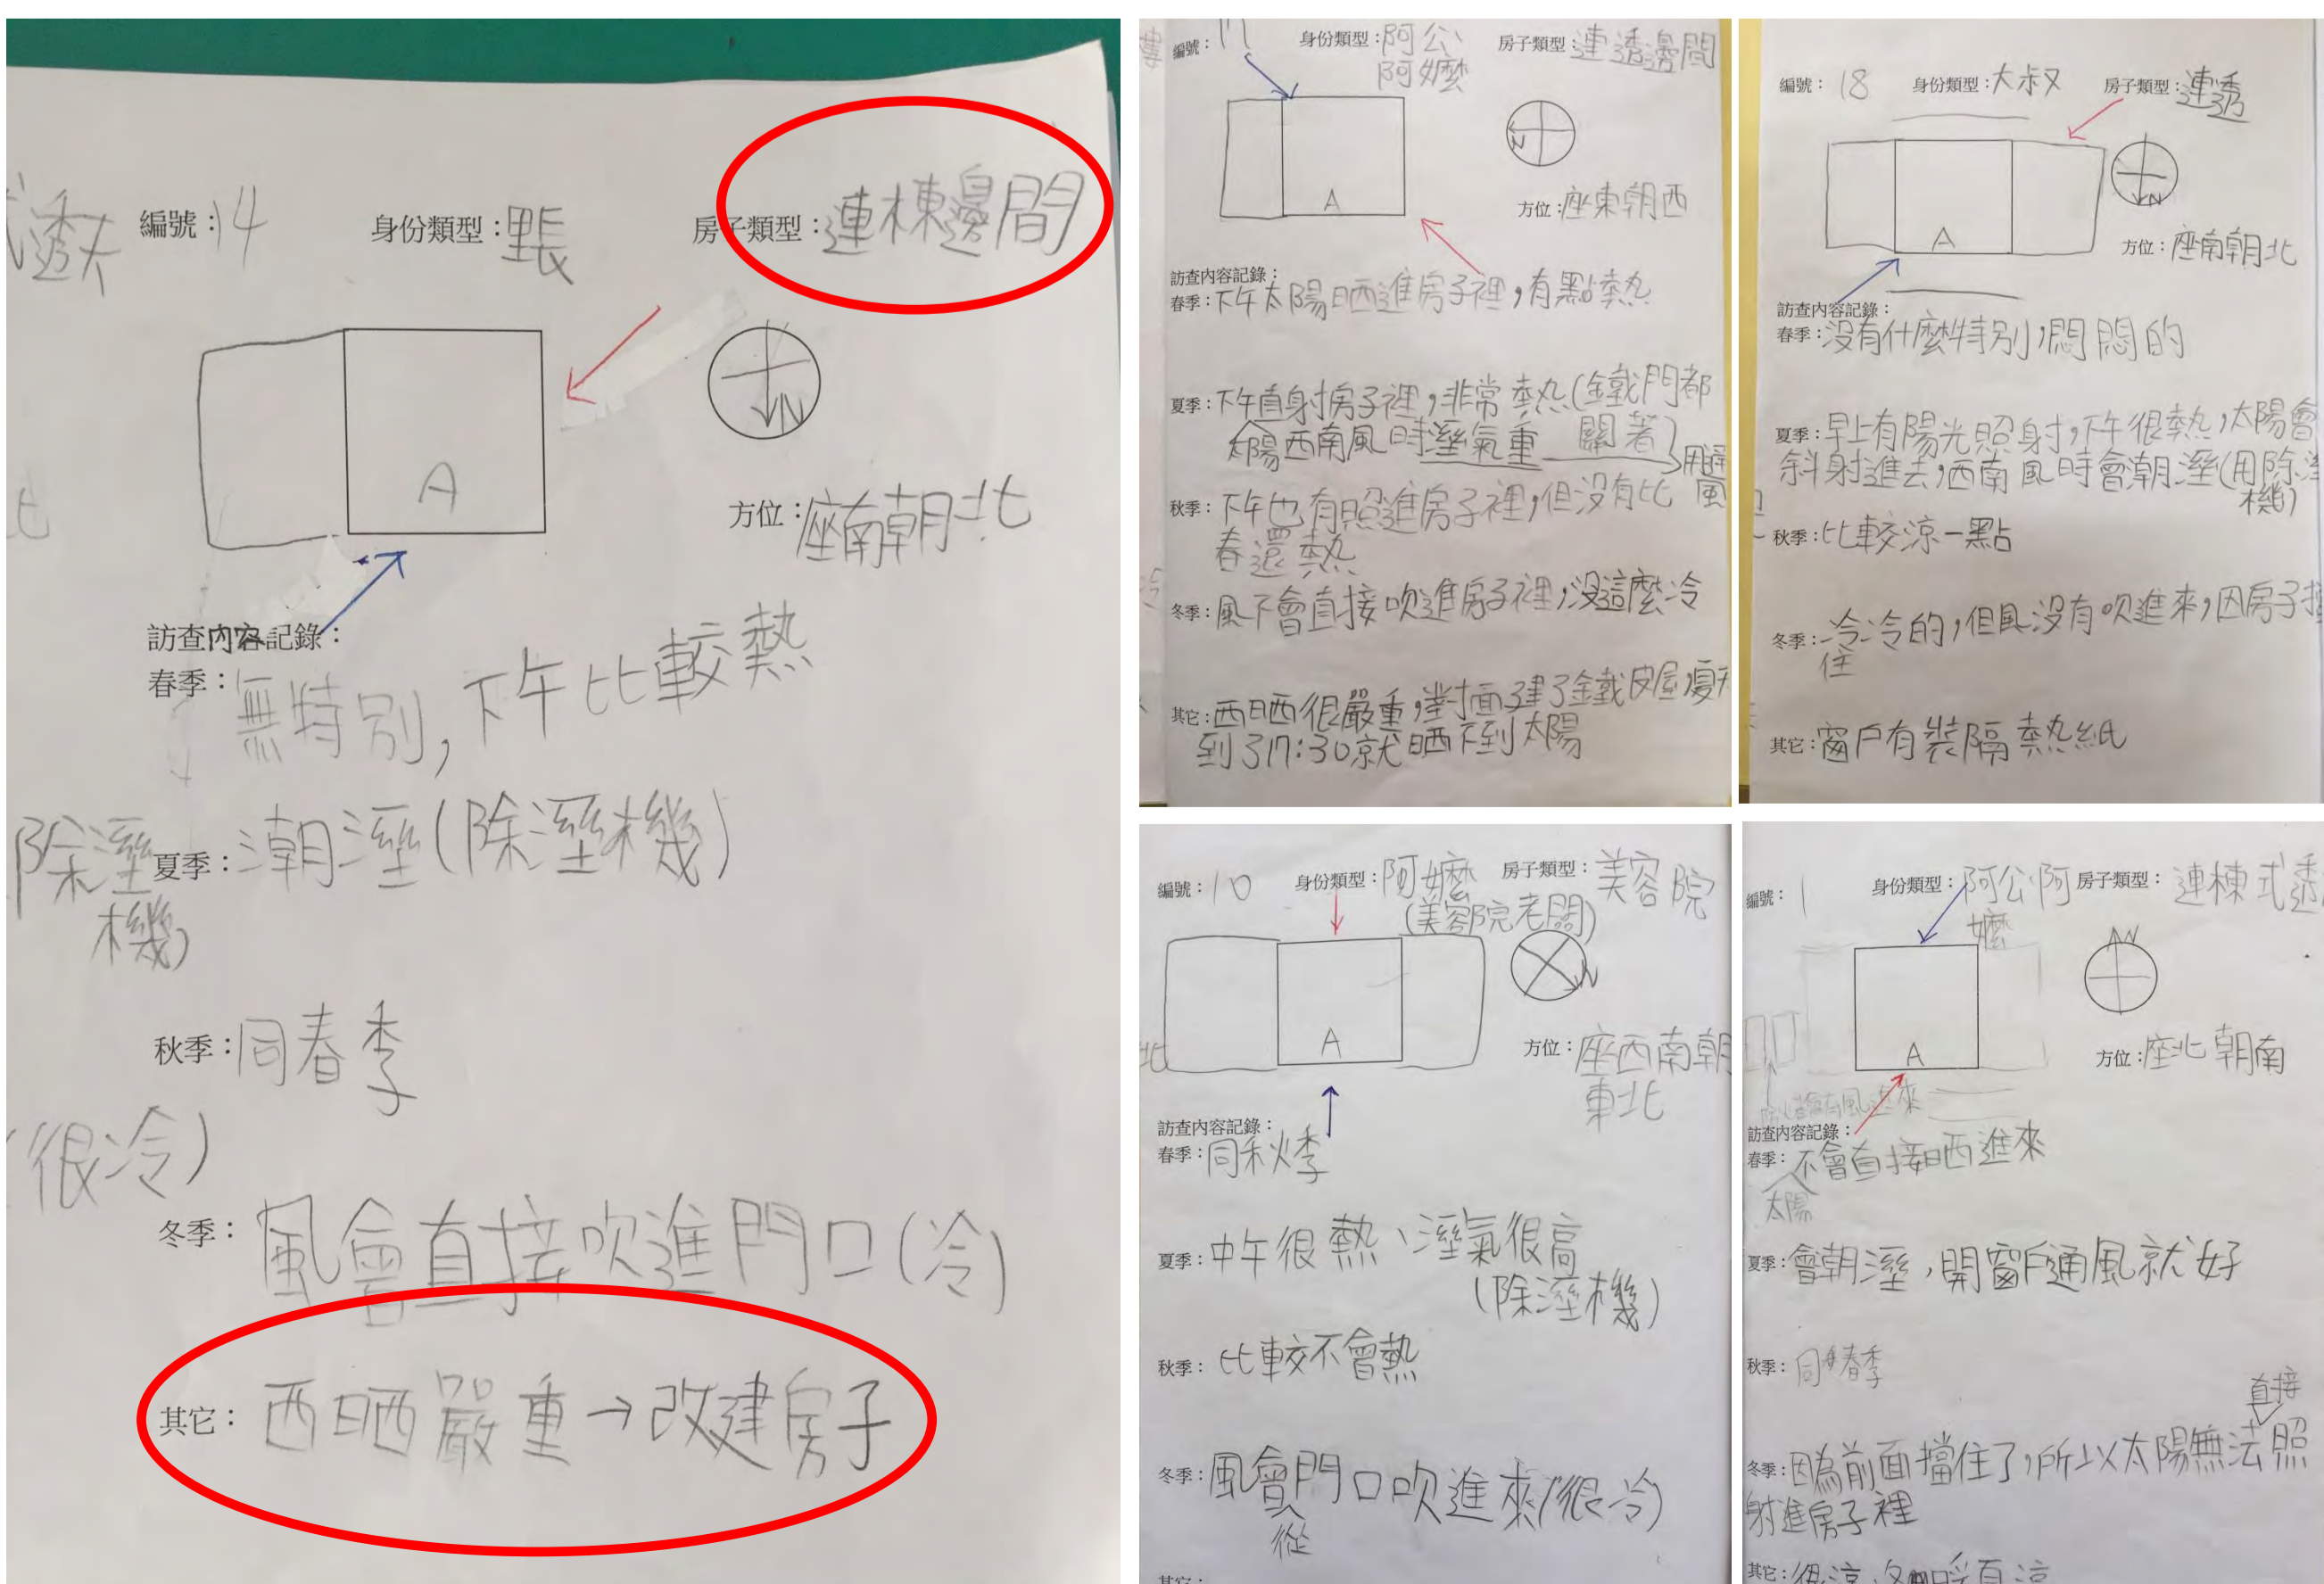 編號：14 身份類型：里長 房子類型：連棟邊間
A
N
方位：座南朝北
訪查內容記錄：
春季：無特別，下午比較熱
夏季：潮溼（除溼機）
秋季：同春季
冬季：風會直接吹進門口（冷）
其它：西晒嚴重→改建房子
式透天
北
除溼
機）
（很冷）
編號：17 身份類型：阿公 房子類型：連透邊間
阿嬤
A
N
方位：座東朝西
訪查內容記錄：
春季：下午太陽晒進房子裡，有點熱
夏季：下午直射房子裡，非常熱（鐵門都
太陽 西南風時溼氣重 關著）
秋季：下午也有照進房子裡，但沒有比
春還熱
冬季：風不會直接吹進房子裡，沒這麼冷
其它：西晒很嚴重，對面建了鐵皮屋，夏天
到了17:30就晒不到太陽
編號：18 身份類型：大叔 房子類型：連透
A
N
方位：座南朝北
訪查內容記錄：
春季：沒有什麼特別，悶悶的
夏季：早上有陽光照射，下午很熱，太陽會
斜射進去，西南風時會潮溼（用除溼
機）
秋季：比較涼一點
冬季：冷冷的，但風沒有吹進來，因房子擋
住
其它：窗戶有裝隔熱紙
編號：10 身份類型：阿嬤 房子類型：美容院
（美容院老闆）
A
N
方位：座西南朝
東北
訪查內容記錄：
春季：同秋季
夏季：中午很熱、溼氣很高
（除溼機）
秋季：比較不會熱
冬季：風會門口吹進來（很冷）
從
其它：
編號：1 身份類型：阿公阿 房子類型：連棟式透
嬤
A
N
方位：座北朝南
訪查內容記錄：
春季：不會直接晒進來
太陽
夏季：會潮溼，開窗戶通風就好
秋季：同春季
直接
冬季：因為前面擋住了，所以太陽無法照
射進房子裡
其它：很涼